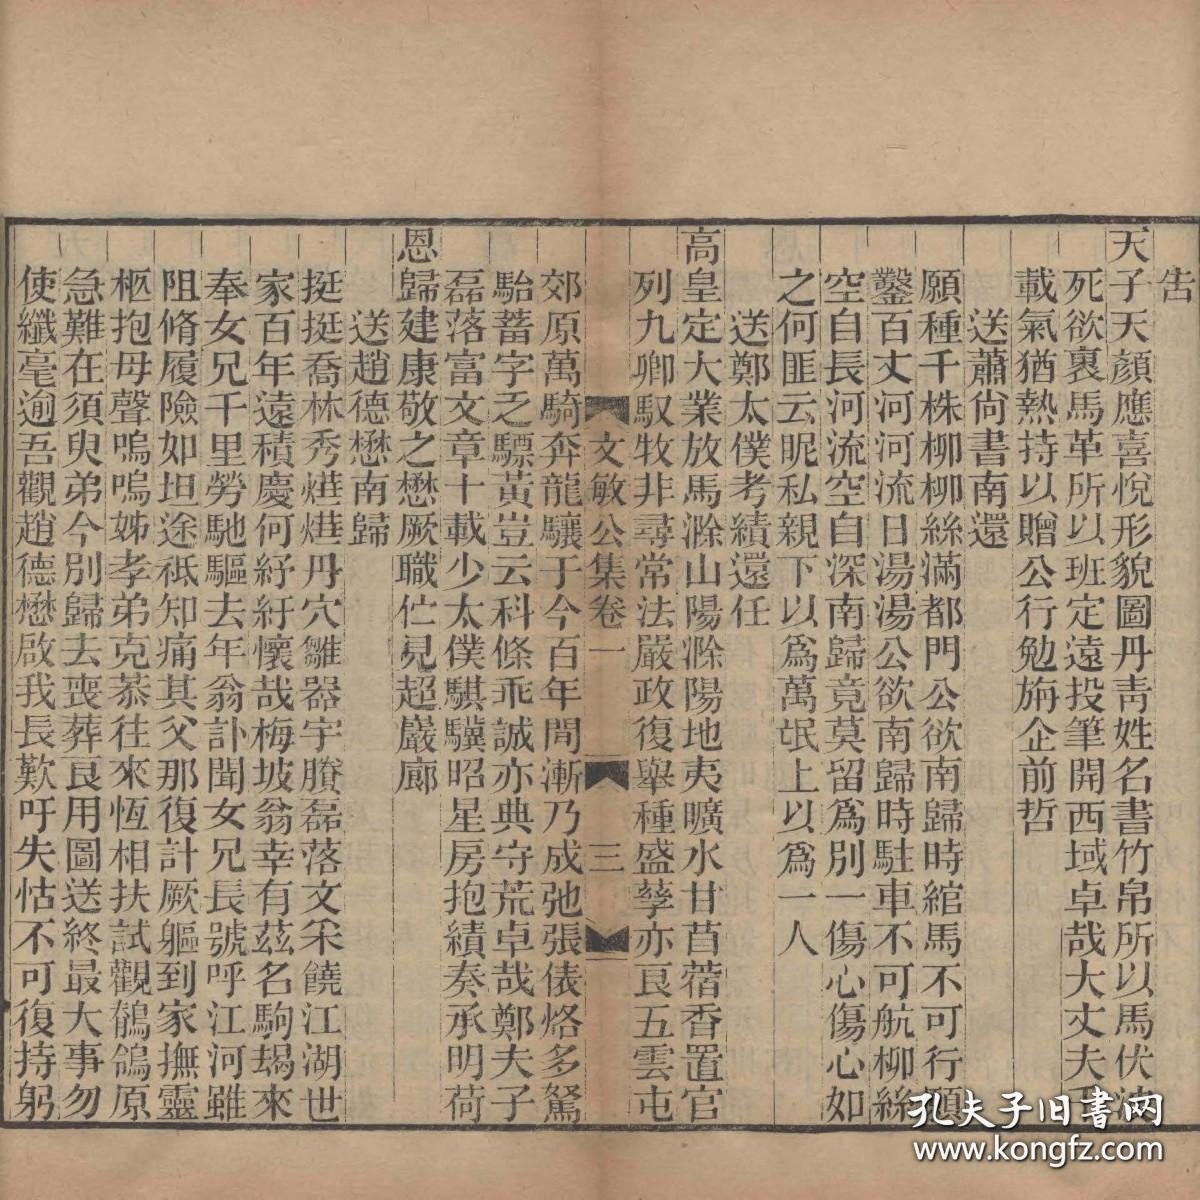 告
天子天顏應喜悅形貌圖丹靑姓名書竹帛所以馬伏波
死欲裹馬革所以班定遠投筆開西域卓哉大丈夫千
載氣猶熱持以贈公行勉旃企前哲
送蕭尙書南還
願種千株柳柳絲滿都門公欲南歸時綰馬不可行願
鑿百丈河河流日湯湯公欲南歸時駐車不可航柳絲
空自長河流空自深南歸竟莫留爲別一傷心傷心如
之何匪云昵私親下以爲萬氓上以爲一人
送鄭太僕考績還任
高皇定大業放馬滁山陽滁陽地夷曠水甘苜蓿香置官
列九卿馭牧非尋常法嚴政復舉種盛孳亦良五雲屯
郊原萬騎奔龍驤于今百年間漸乃成弛張俵烙多駑
駘蓄字乏驃黃豈云科條乖誠亦典守荒卓哉鄭夫子
磊落富文章十載少太僕騏驥昭星房抱績奏承明荷
恩歸建康敬之懋厥職伫見超巖廊
送趙德懋南歸
挺挺喬林秀燁燁丹穴雛器宇賸磊落文采饒江湖世
家百年遠積慶何紓紆懷哉梅坡翁幸有茲名駒朅來
奉女兄千里勞馳驅去年翁訃聞女兄長號呼江河雖
阻脩履險如坦途祗知痛其父那復計厥軀到家撫靈
柩抱毋聲嗚嗚姊孝弟克恭往來恆相扶試觀鶺鴒原
急難在須臾弟今別歸去喪葬良用圖送終最大事勿
使纖毫逾吾觀趙德懋啟我長歎吁失怙不可復持躬
文敏公集卷一
三
孔夫子旧书网
www.kongfz.com